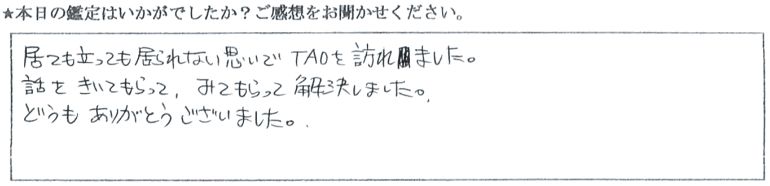 ★本日の鑑定はいかがでしたか？ご感想をお聞かせください。
居ても立っても居られない思いで TAOを訪れました。
話をきいてもらって、みてもらって解決しました。
どうもありがとうございました。